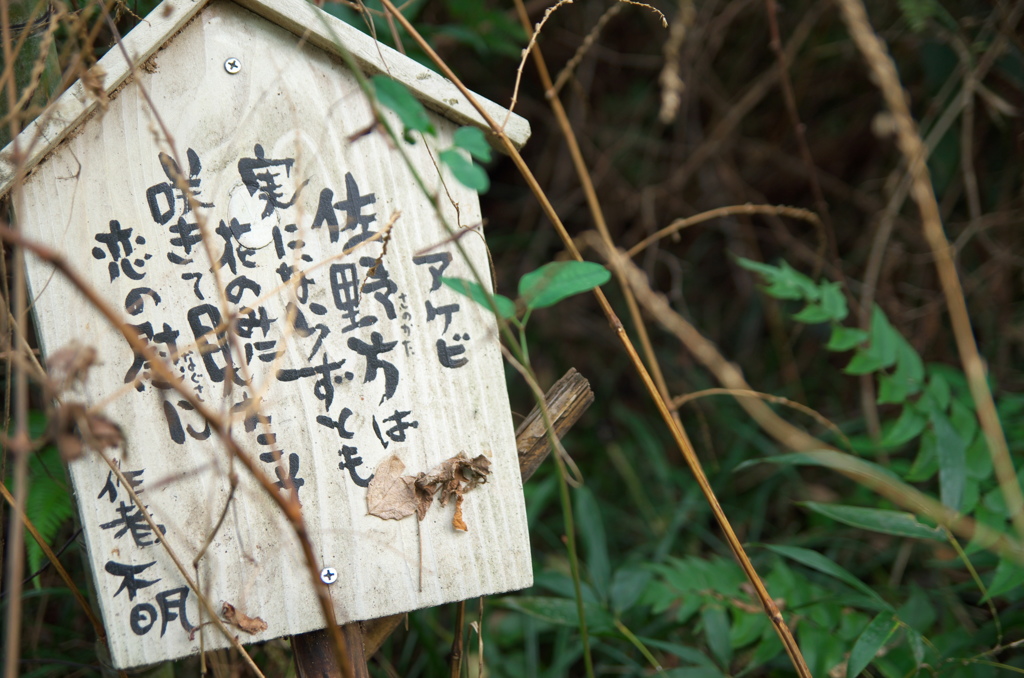 アケビ
佐野方は
さのかた
実にならずとも
花のみに
咲きて見えこそ
恋の慰に
なぐさ
作者不明